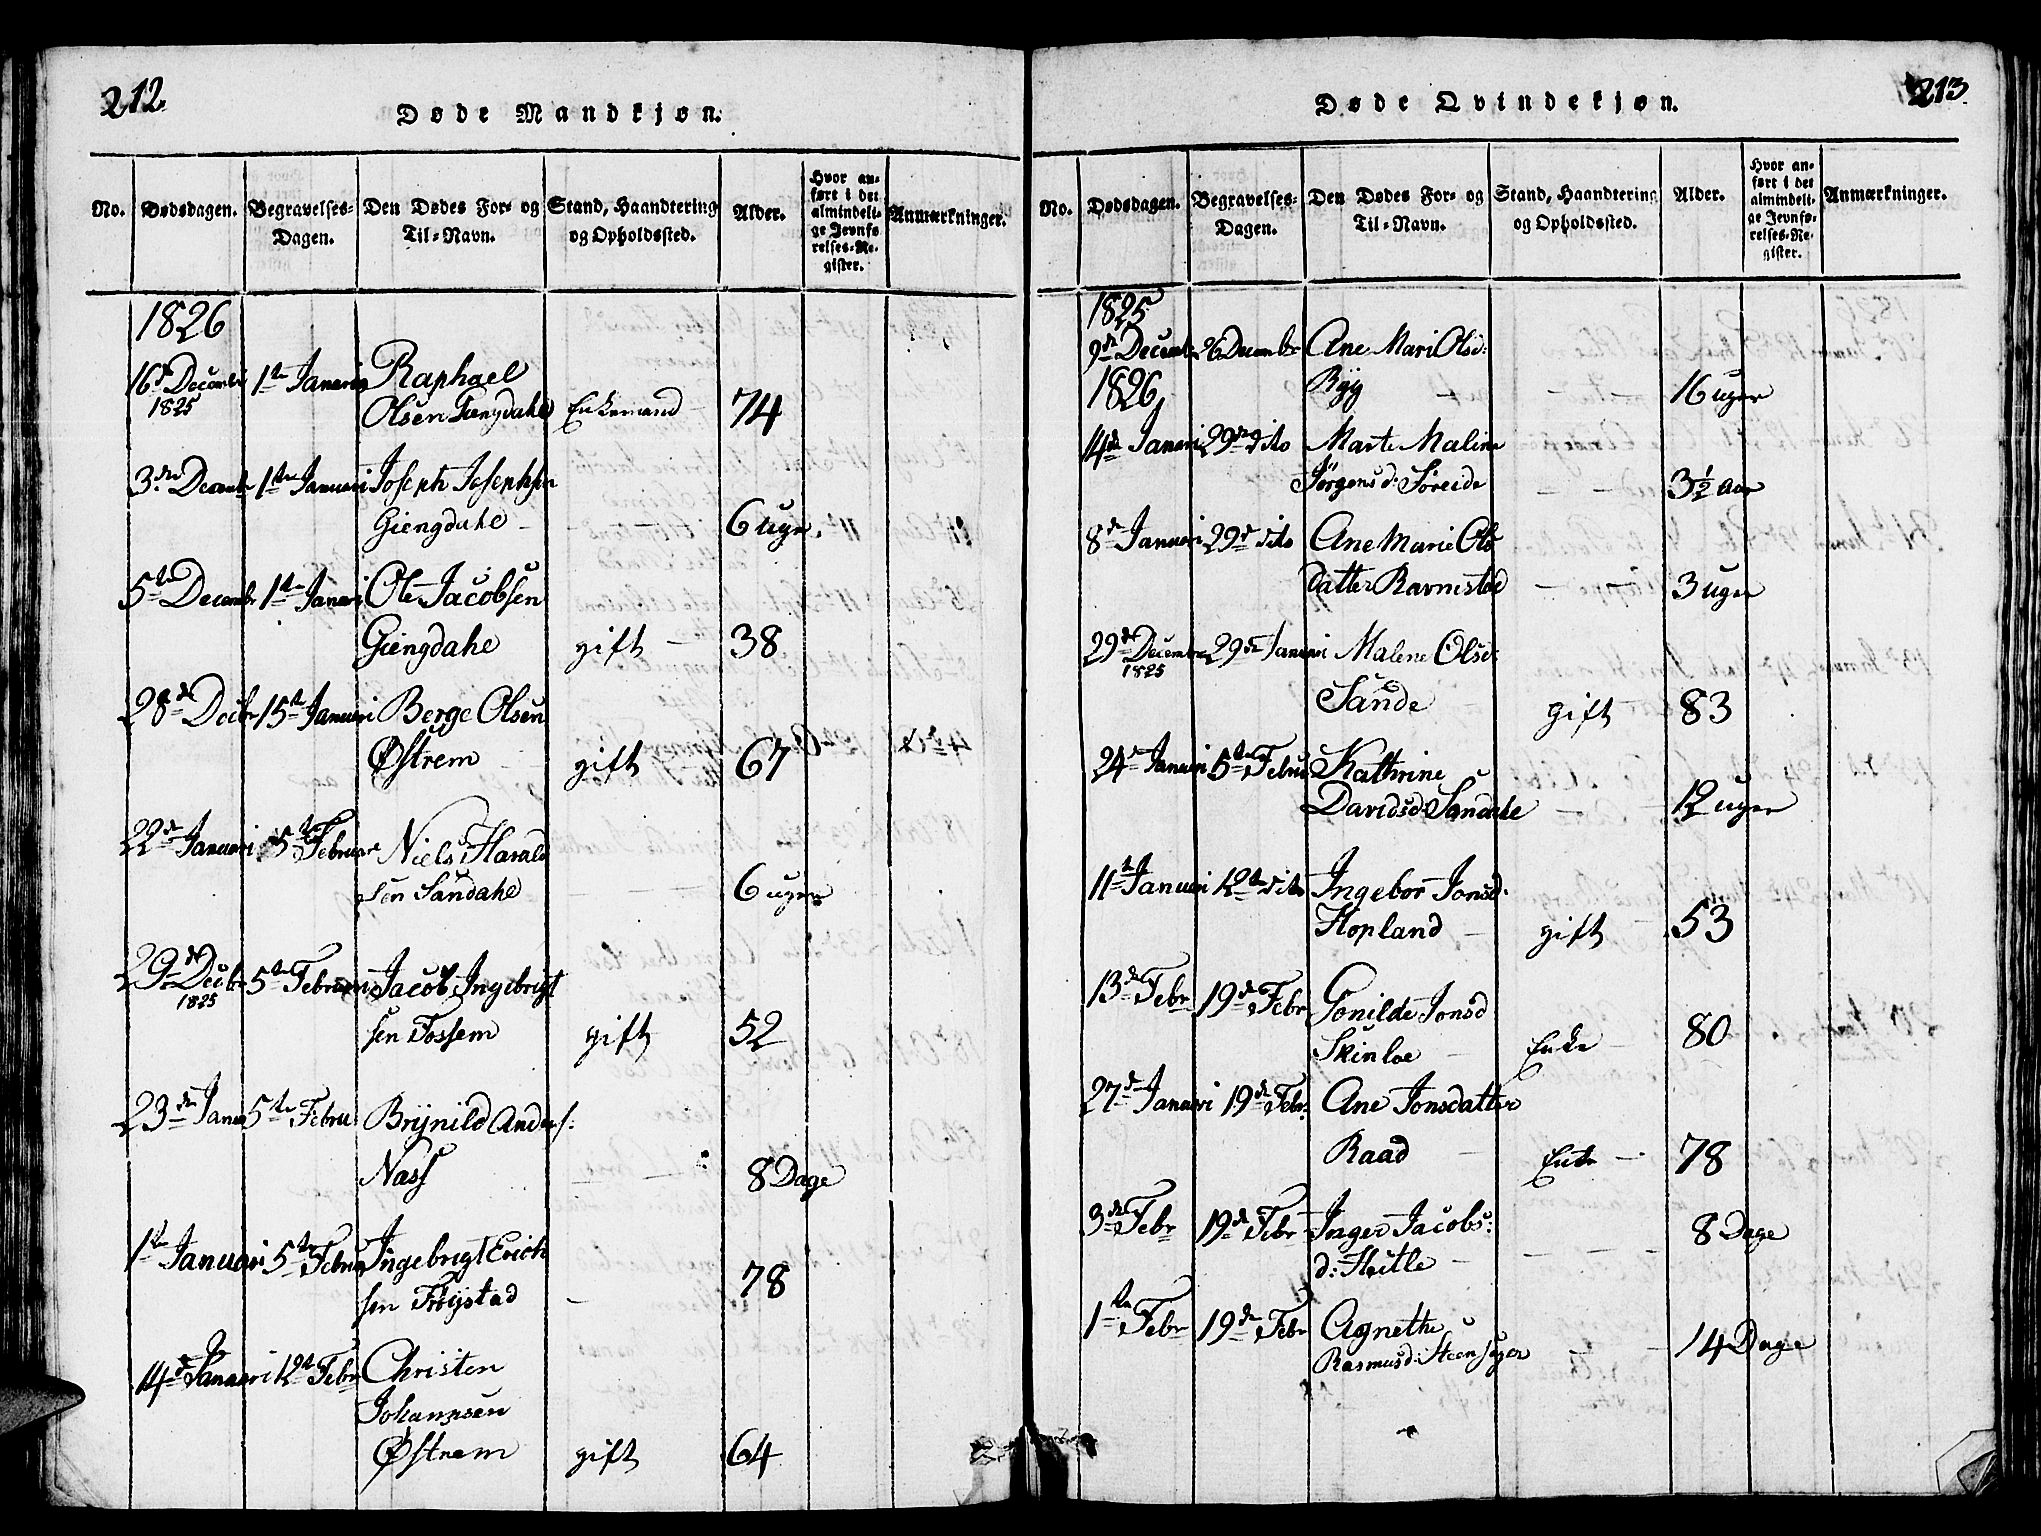 212.
Døde Mandkjøn.
No.
Dødsdagen.
Begravelses-
Dagen.
Den Dødes For- og
Til-Navn.
Stand, Haandtering
og Opholdssted.
Alder.
Hvor an-
ført i det
almindeli-
ge Jevnfø-
relses-Re-
gister.
Anmærkninger.
1826
16de Decembr 1ste Januari Raphael
1825 Olsen Giengdahl Enkemand - 74
3die Decembr 1ste Januari Joseph Josephsen
Giengdahl - 6 uger.
5te Decembr 1ste Januari Ole Jacobsen
Giengdahl gift - 38
28de Decbr 15te Januari Berge Olsen
Østrem gift 67
22de Januari 5te Februar Niels Harald
sen Sandahl 6 uger
29de Decbr 5te Februari Jacob Ingebrigt
1825 sen Fossem gift 52
23de Janua 5te Febru Brynild Anders:
Nass 8 Dage
1ste Januari 5te Februa Ingebrigt Erich
sen Frøystad - 78
14de Januari 12te Febr Christen
Johannsen
Østrem gift 64
213.
Døde Qvindekjøn.
No.
Dødsdagen.
Begravelses-
Dagen.
Den Dødes For- og
Til-Navn.
Stand, Haandtering
og Opholdssted.
Alder.
Hvor an-
ført i det
almindeli-
ge Jevnfø-
relses-Re-
gister.
Anmærkninger.
1825
9de Decembr 26 Decembr Ane Mari Olsd:
1826 Ryg - 16 uger
14de Januari 29de dito Marte Malina
Jørgensd: Søreide - - 3½ Aar
8de Januari 29de dito Ane Marie Ols
datter Ravnestad - - 3 uger
29de Decembr 29de Januari Malene Olsd:
1825
Sande gift - 83
24de Januari 5te Februa Kathrine
Davidsd: Sandahl - 12 uger
11te Januari 12te dito Ingebor Jonsd:
Hopland - gift - 53
13de Febr 19de Febr Gonilde Jonsd
Skinloe - Enke - 80
27de Januari 19de Febr: Ane Jonsdatter
Raad - Enke - 78
3die Febr 19de Febr Inger Jacobs:
8 Dage
d: Hetle - - - -
1ste Febr 19de Febr Agnethe
Rasmusd: Steensager - 14 Dage